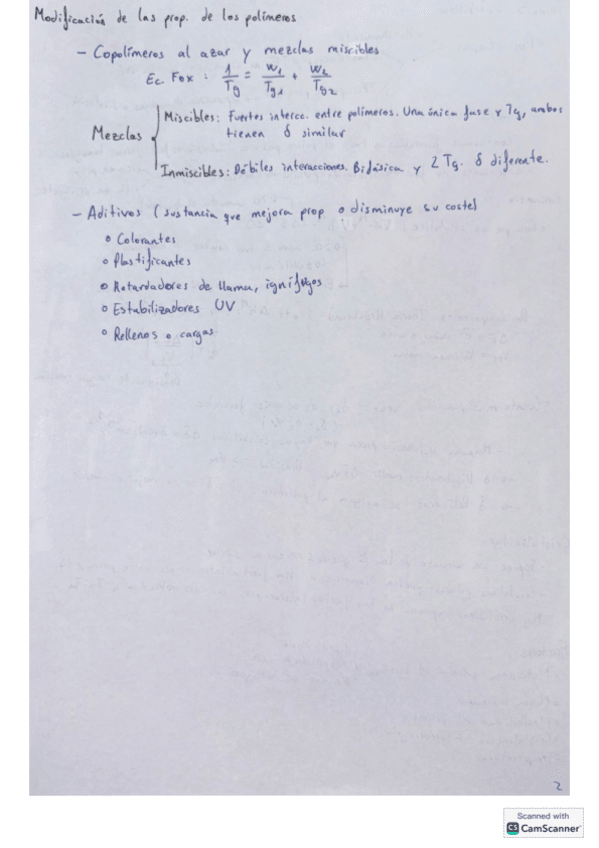 Modificación de las prop. de los polímeros
- Copolímeros al azar y mezclas miscibles
Ec. Fox : 1/Tg = w1/Tg1 + w2/Tg2
Mezclas
Miscibles: Fuertes interacc. entre polímeros. Una única fase y Tg, ambos
tienen δ similar
Inmiscibles: Débiles interacciones. Bifásica y 2 Tg. δ diferente.
- Aditivos (sustancia que mejora prop o disminuye su coste)
• Colorantes
• Plastificantes
• Retardadores de llama, ignífugos
• Estabilizadores UV
• Rellenos o cargas
2
Scanned with
CS CamScanner